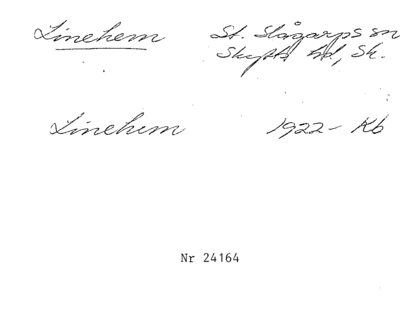 Linehem St. Slågarps sn
Skytts hd, Sk.
Linehem 1922- Kb
Nr 24164